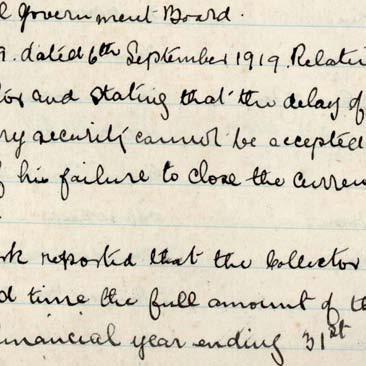 l Government Board.
9. dated 6th September 1919. Relati
tor and stating that the delay of
ry security cannot be accepted
f his failure to close the curren
rk reported that the Collector
d time the full amount of th
financial year ending 31st